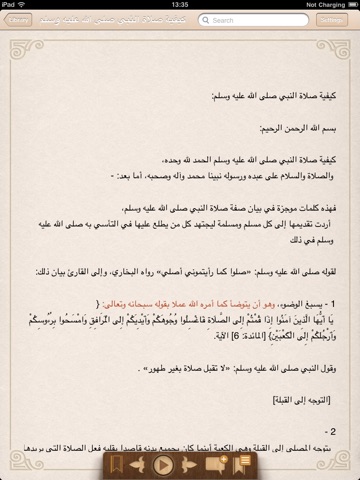 iPad
13:35
Not Charging
Library
كيفية صلاة النبي صلى الله عليه وسلم
Search
Settings
كيفية صلاة النبي صلى الله عليه وسلم:
بسم الله الرحمن الرحيم:
كيفية صلاة النبي صلى الله عليه وسلم الحمد لله وحده،
والصلاة والسلام على عبده ورسوله نبينا محمد وآله وصحبه، أما بعد: -
فهذه كلمات موجزة في بيان صفة صلاة النبي صلى الله عليه وسلم،
أردت تقديمها إلى كل مسلم ومسلمة ليجتهد كل من يطلع عليها في التأسي به صلى الله عليه
وسلم في ذلك
لقوله صلى الله عليه وسلم: «صلوا كما رأيتموني أصلي» رواه البخاري، وإلى القارئ بيان ذلك:
1 - يسبغ الوضوء، وهو أن يتوضأ كما أمره الله عملا بقوله سبحانه وتعالى: {
يَا أَيُّهَا الَّذِينَ آمَنُوا إِذَا قُمْتُمْ إِلَى الصَّلَاةِ فَاغْسِلُوا وُجُوهَكُمْ وَأَيْدِيَكُمْ إِلَى الْمَرَافِقِ وَامْسَحُوا بِرُءُوسِكُمْ
وَأَرْجُلَكُمْ إِلَى الْكَعْبَيْنِ} [المائدة: 6] الآية.
وقول النبي صلى الله عليه وسلم: «لا تقبل صلاة بغير طهور» .
[التوجه إلى القبلة]
2 -
يتوجه المصلي إلى القبلة وهي الكعبة أينما كان بجميع بدنه قاصدا بقلبه فعل الصلاة التي يريدها